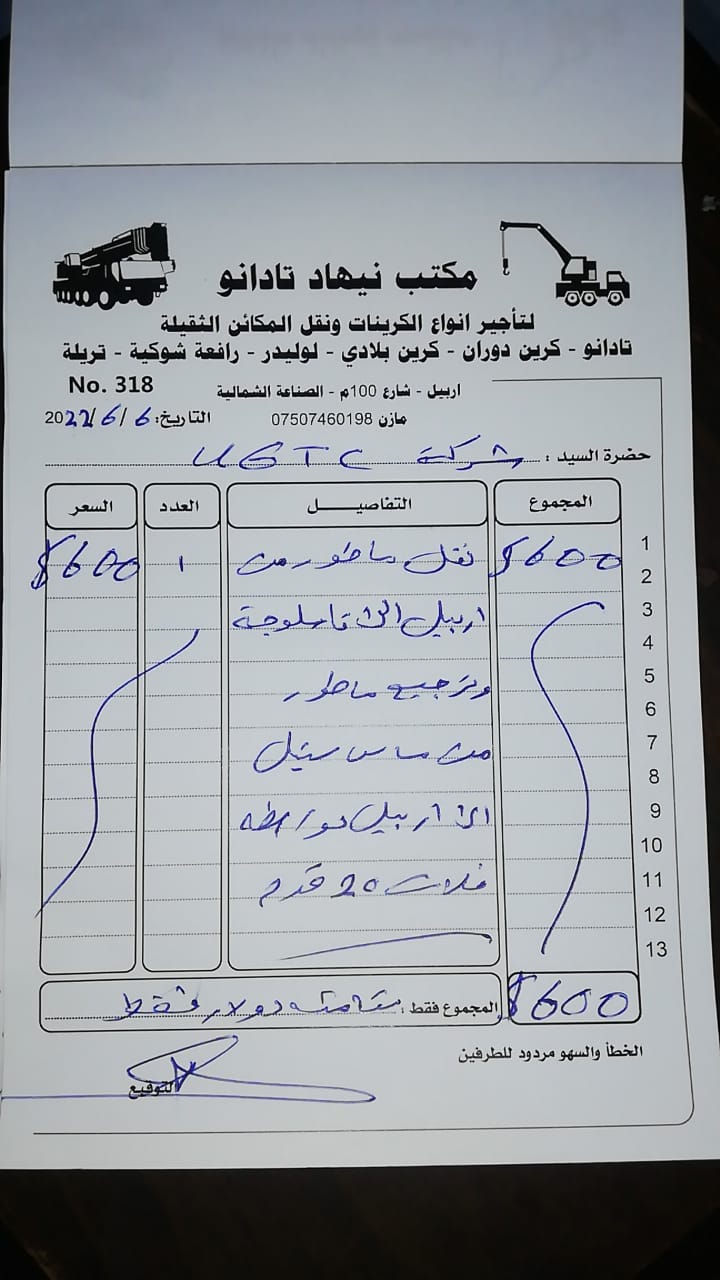 مكتب نيهاد تادانو
لتأجير انواع الكرينات ونقل المكائن الثقيلة
تادانو - كرين دوران - كرين بلادي - لوليدر - رافعة شوكية - تريلة
No. 318
اربيل - شارع 100م - الصناعة الشمالية
التاريخ: 6 / 6 / 2022
مازن 07507460198
حضرة السيد : شركة UGTC
المجموع التفاصيل العدد السعر
1
$600 نقل ماطور من 1 $600
2
3
اربيل الى تاسلوجة
4
5
وترجيع ماطور
6
7
من ماس ستيل
8
9
الى اربيل بواسطة
10
11
فلات 20 قدم
12
13
$600
المجموع فقط : ستمائة دولار فقط
الخطأ والسهو مردود للطرفين
التوقيع